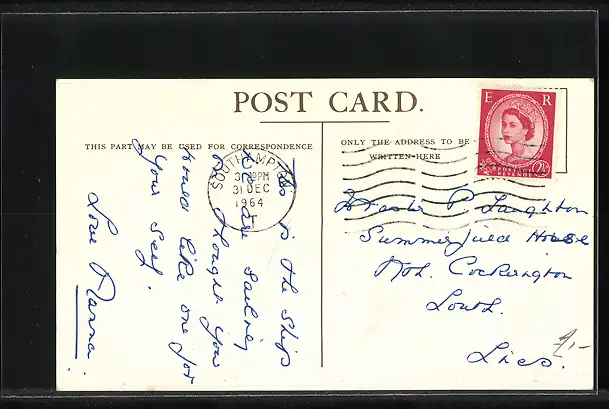 POST CARD.
THIS PART MAY BE USED FOR CORRESPONDENCE
ONLY THE ADDRESS TO BE
WRITTEN HERE
E R
POSTAGE
REVENUE
2½
SOUTHAMPTON
PM
31 DEC
1964
T
This is the ship
we are sailing
on thought you
would like one for
your self.
Love Nanna.
Master P Laughton
Summerfield House
Nth. Cockerington
Louth.
Lincs.